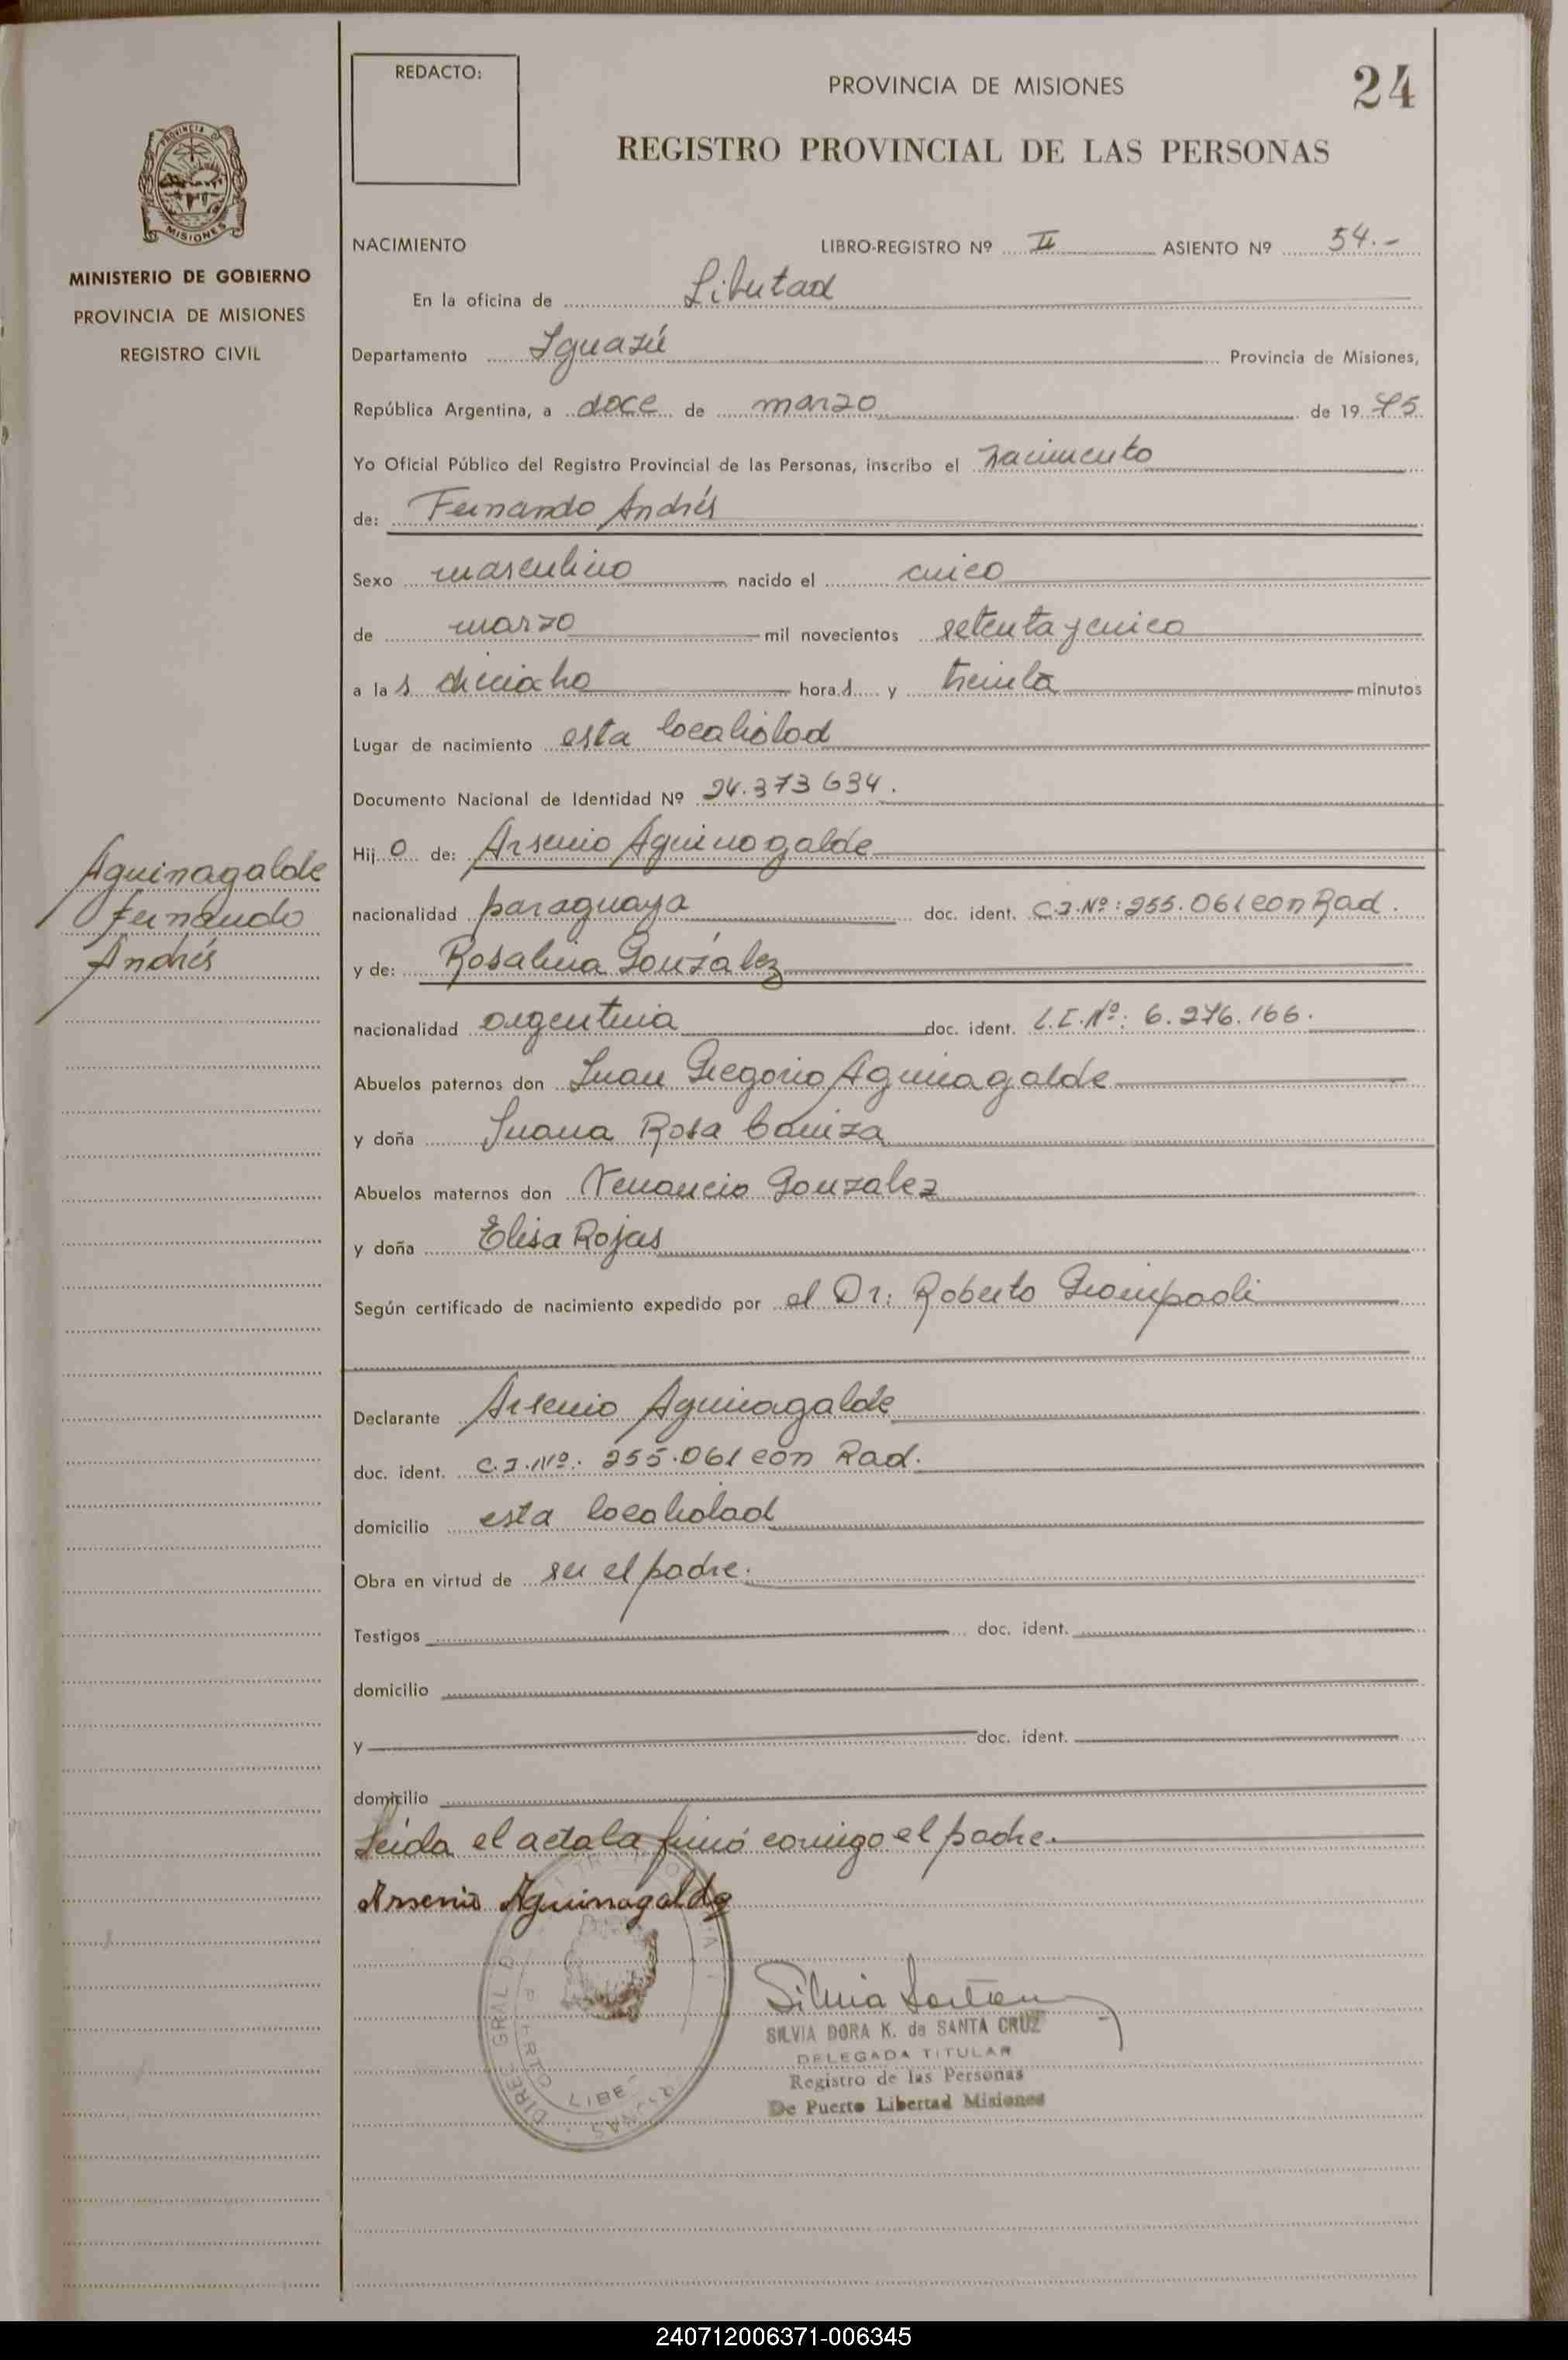 REDACTO:
PROVINCIA DE MISIONES
24
REGISTRO PROVINCIAL DE LAS PERSONAS
PROVINCIA DE
MISIONES
MINISTERIO DE GOBIERNO
PROVINCIA DE MISIONES
REGISTRO CIVIL
NACIMIENTO LIBRO-REGISTRO Nº II ASIENTO Nº 54.-
En la oficina de Libertad
Departamento Iguazú Provincia de Misiones,
República Argentina, a doce de marzo de 1975
Yo Oficial Público del Registro Provincial de las Personas, inscribo el nacimiento
de: Fernando Andrés
Sexo masculino nacido el cinco
de marzo mil novecientos setenta y cinco
a las dieciocho horas y treinta minutos
Lugar de nacimiento esta localidad
Documento Nacional de Identidad Nº 24.373 634.
Hijo de: Arsenio Aguinagalde
Aguinagalde
Fernando
Andrés
nacionalidad paraguaya doc. ident. C.I.Nº: 255.061 con Rad.
y de: Rosalina González
nacionalidad argentina doc. ident. L.C.Nº: 6.276.166.
Abuelos paternos don Juan Gregorio Aguinagalde
y doña Juana Rosa Caniza
Abuelos maternos don Venancio Gonzalez
y doña Elisa Rojas
Según certificado de nacimiento expedido por el Dr: Roberto Giampaoli
Declarante Arsenio Aguinagalde
doc. ident. C.I.Nº: 255.061 con Rad.
domicilio esta localidad
Obra en virtud de ser el padre.
Testigos doc. ident.
domicilio
y doc. ident.
domicilio
Leída el acta la firmó conmigo el padre.
Arsenio Aguinagalde
Silvia
SILVIA DORA K. de SANTA CRUZ
DELEGADA TITULAR
Registro de las Personas
De Puerto Libertad Misiones
240712006371-006345